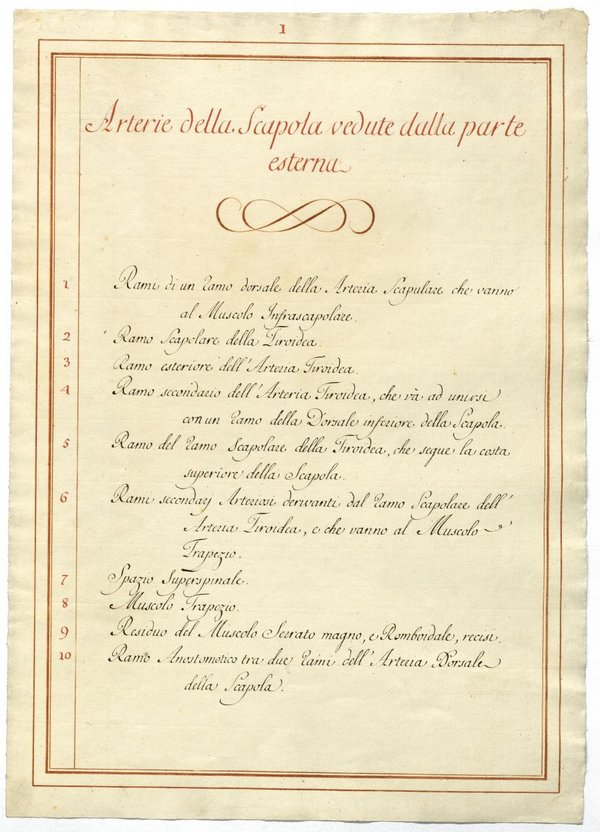 1
Arterie della Scapola vedute dalla parte
esterna
1 Rami di un ramo dorsale della Arteria Scapulare che vanno
al Muscolo Infrascapolare.
2 Ramo Scapolare della Tiroidea.
3 Ramo esteriore dell'Arteria Tiroidea.
4 Ramo secondario dell'Arteria Tiroidea, che và ad unirsi
con un ramo della Dorsale inferiore della Scapola.
5 Ramo del ramo Scapolare della Tiroidea, che segue la costa
superiore della Scapola.
6 Rami secondarj Arteriosi derivanti dal ramo Scapolare dell'
Arteria Tiroidea, e che vanno al Muscolo
Trapezio.
7 Spazio Superspinale.
8 Muscolo Trapezio.
9 Residuo del Muscolo Serrato magno, e Romboidale, recisi.
10 Ramo Anostomotico tra due rami dell'Arteria Dorsale
della Scapola.